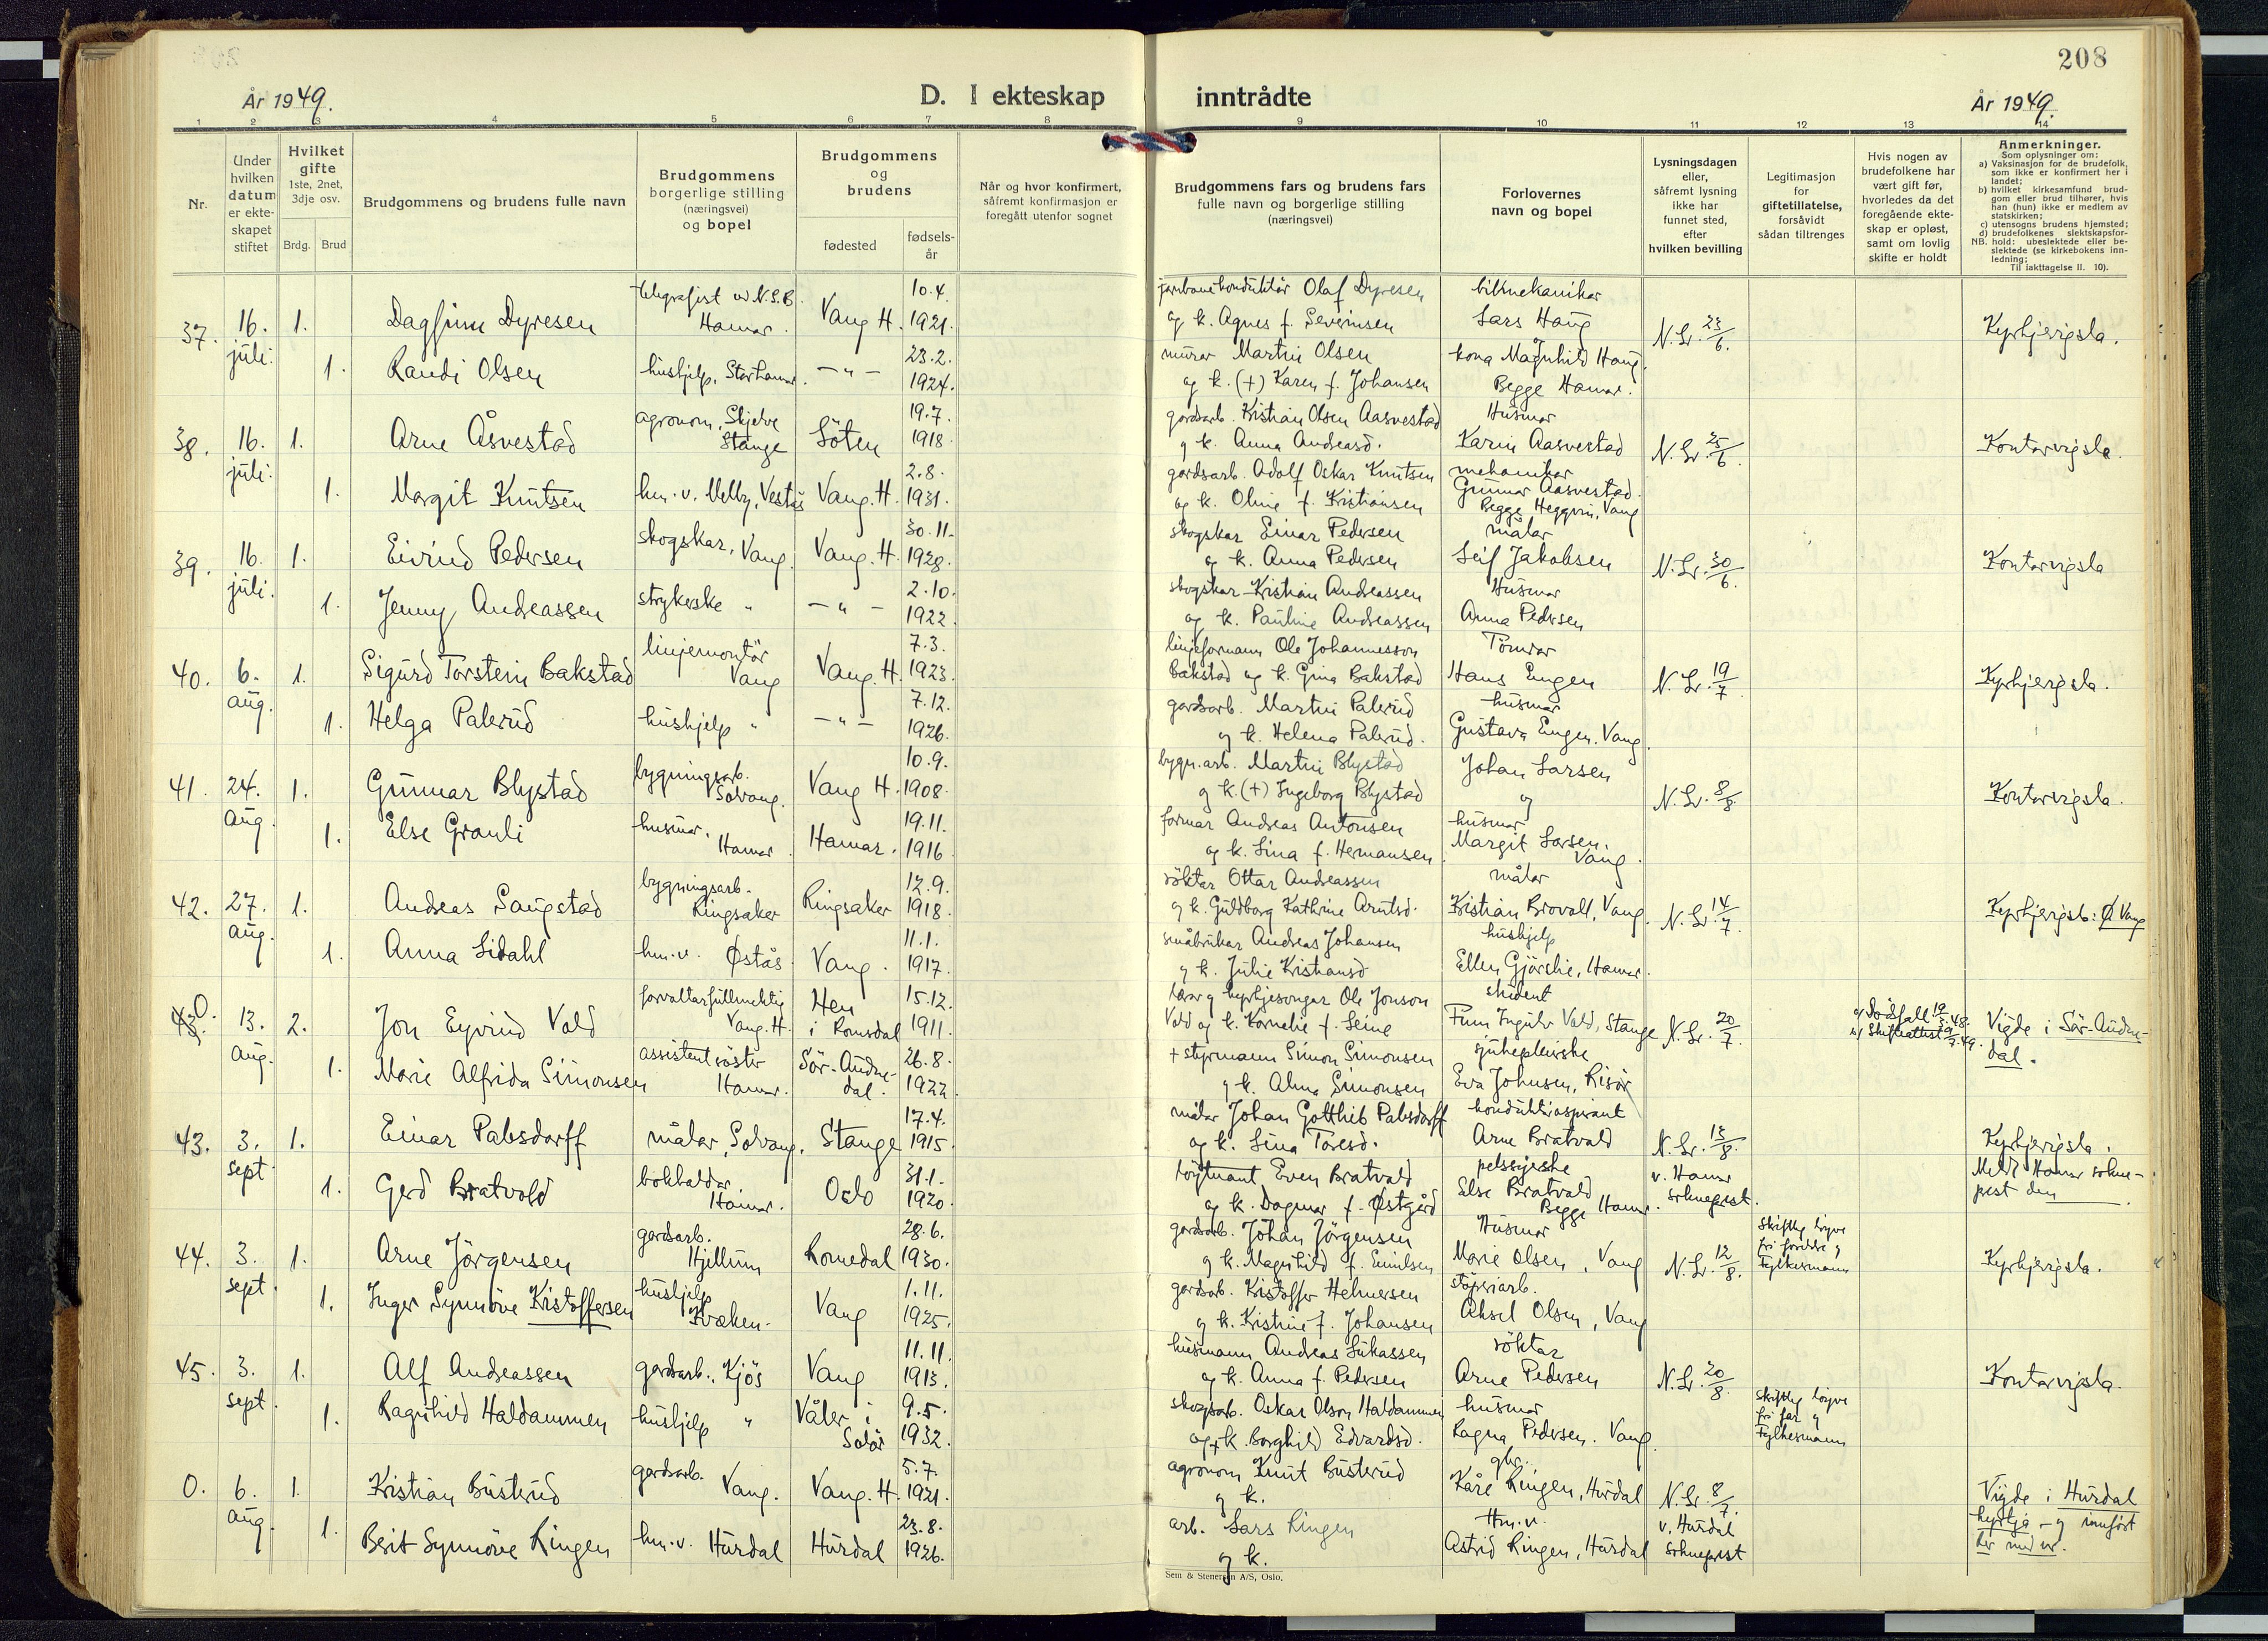 208
År 1949.
D. I ekteskap inntrådte
År 1949.
1 2 3 4 5 6 7 8 9 10 11 12 13 14
Nr.
Under hvilken datum er ekteskapet stiftet
Hvilket gifte
1ste, 2net, 3dje osv.
Brdg. Brud
Brudgommens og brudens fulle navn
Brudgommens borgerlige stilling (næringsvei) og bopel
Brudgommens og brudens
fødested
fødsels-år
Når og hvor konfirmert, såfremt konfirmasjon er foregått utenfor sognet
Brudgommens fars og brudens fars fulle navn og borgerlige stilling (næringsvei)
Forlovernes navn og bopel
Lysningsdagen eller, såfremt lysning ikke har funnet sted, efter hvilken bevilling
Legitimasjon for giftetillatelse, forsåvidt sådan tiltrenges
Hvis nogen av brudefolkene har vært gift før, hvorledes da det foregående ekteskap er opløst, samt om lovlig skifte er holdt
Anmerkninger.
Som oplysninger om:
a) Vaksinasjon for de brudefolk, som ikke er konfirmert her i landet;
b) hvilket kirkesamfund brudgom eller brud tilhører, hvis han (hun) ikke er medlem av statskirken;
c) utensogns brudens hjemsted;
d) brudefolkenes slektskapsforhold: ubeslektede eller beslektede (se kirkebokens innledning;
NB.
Til iakttagelse II. 10).
37. 16. juli. 1. Dagfinn Dyresen telegrafist v. N.S.B. Hamar. Vang H. 10.4. 1921. jernbanekonduktör Olaf Dyresen og k. Agnes f. Severinsen bilmekanikar Lars Haug N. Lr. 23/6. Kyrkjevigsla.
1. Randi Olsen hushjelp, Storhamar. -"- 23.2. 1924. murar Martin Olsen og k. (+) Karen f. Johansen kona Magnhild Haug. Begge Hamar.
38. 16. juli. 1. Arne Åsvestad agronom, Skjelve Stange Löten 19.7. 1918 gardsarb. Kristian Olsen Aasvestad og k. Anna Andreasd. Husmor Karin Aasvestad N. Lr. 25/6. Kontorvigsla.
1. Margit Knutsen hm. v. Melby, Vestås Vang. H. 2.8. 1931. gardsarb. Adolf Oskar Knutsen og k. Oline f. Kristiansen mekanikar Gunnar Aasvestad. Begge Heggvin, Vang
39. 16. juli. 1. Eivind Pedersen skogskar, Vang. Vang. H. 30.11. 1928. skogskar Einar Pedersen og k. Anna Pedersen målar Leif Jakobsen N. Lr. 30/6. Kontorvigsla
1. Jenny Andreassen strykerske " -"- 2.10. 1922. skogskar Kristian Andreassen og k. Pauline Andreassen Husmor Anna Pedersen
40. 6. aug. 1. Sigurd Torstein Bakstad linjemontör Vang Vang. H. 7.3. 1923. linjeformann Ole Johannesson Bakstad og k. Gina Bakstad Tömrar Hans Engen N. Lr. 19/7. Kyrkjevigsla.
1. Helga Palerud hushjelp " -"- 7.12. 1926. gardsarb. Martin Palerud og k. Helena Palerud. husmor Gustava Engen. Vang.
41. 24. aug. 1. Gunnar Blystad bygningsarb. Solvang. Vang H. 10.9. 1908. bygn.arb. Martin Blystad og k. (+) Ingeborg Blystad Johan Larsen og N. Lr. 8/8. Kontorvigsla.
1. Else Granli husmor. Hamar. Hamar. 19.11. 1916 formar Andreas Antonsen og k. Lina f. Hermansen husmor Margit Larsen. Vang.
42. 27. aug. 1. Andreas Saugstad bygningsarb. Ringsaker Ringsaker 12.9. 1918. röktar Ottar Andreassen og k. Guldborg Kathrine Arntsd. målar Kristian Brovoll, Vang. N. Lr. 14/7. Kyrkjevigsla: Ø. Vang
1. Anna Lidahl hm. v. Østås Vang. 11.1. 1917. småbrukar Andreas Johansen og k. Julie Kristiansd. hushjelp Ellen Gjörslie, Hamar.
0. 13. aug. 2. Jon Eyvind Vold forvaltarfullmektig Vang. H. Hen i Romsdal 15.12. 1911. lærar og kyrkjesongar Ole Jonson Vold og k. Kornelie f. Leine student Finn Ingulv Vold, Stange N. Lr. 20/7. a) Dödsfall b) Skifteattest Vigde i Sör-Audnedal.
1. Marie Alfrida Simonsen assistentsöster Hamar. Sör-Audnedal. 26.8. 1922 + styrmann Simon Simonsen og k. Alma Simonsen sjukepleierske Eva Johnsen, Risör
43. 3. sept. 1. Einar Palsdorff målar, Solvang. Stange 17.4. 1915 målar Johan Gottlieb Palsdorff og k. Lina Toresd. konduktöraspirant Arne Bratvold N. Lr. 13/8. Kyrkjevigsla.
1. Gerd Bratvold bokhaldar. Hamar. Oslo 31.1. 1920. löytnant Even Bratvold og k. Dagmar f. Østgård pelssyerske Else Bratvold Begge Hamar. v. Hamar sokneprest. Meldt Hamar sokneprest den
44. 3. sept. 1. Arne Jörgensen gardsarb. Hjellum Romedal 28.6. 1930. gardsarb. Johan Jörgensen og k. Magnhild f. Emilsen Husmor Marie Olsen, Vang N. Lr. 12/8. Skriftleg löyve frå foreldre og Fylkesmann Kyrkjevigsla.
1. Inger Synnöve Kristoffersen hushjelp Kræken. Vang 1.11. 1925. gardsarb. Kristoffer Helmersen og k. Kristine f. Johansen stöperiarb. Aksel Olsen, Vang
45. 3. sept. 1. Alf Andreassen gardsarb. Kjös Vang 11.11. 1913. husmann Andreas Lukassen og k. Anna f. Pedersen röktar Arne Pedersen N. Lr. 20/8. Kontorvigsla.
1. Ragnhild Haldammen hushjelp " Våler i Solör 9.5. 1932. skogsarb. Oskar Olson Haldammen og + k. Borghild Edvardsd. husmor Ragna Pedersen. Vang. Skriftleg löyve frå far og Fylkesmann
0. 6. aug. 1. Kristian Busterud gardsarb. Vang. Vang. H. 5.7. 1921. agronom Knut Busterud og k. gbr. Kåre Ringen, Hurdal N. Lr. 8/7. Vigde i Hurdal kyrkja - og innfört her med nr.
1. Berit Synnöve Ringen hm. v. Hurdal Hurdal 23.8. 1926. arb. Lars Ringen og k. Hm. v. Astrid Ringen, Hurdal v. Hurdal sokneprest
Sem & Stenersen A/S, Oslo.